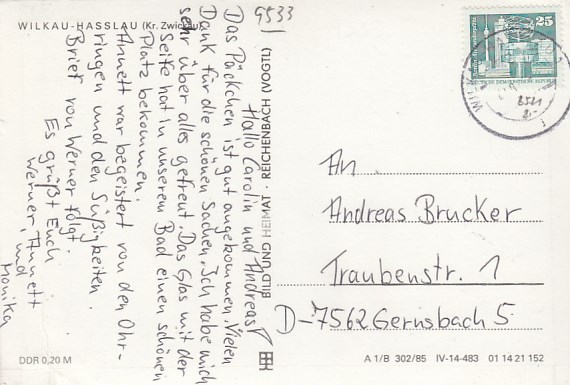 WILKAU-HASSLAU (Kr. Zwickau)
9533
Hallo Carolin und Andreas!
Das Päckchen ist gut angekommen. Vielen
Dank für die schönen Sachen. Ich habe mich
sehr über alles gefreut. Das Glas mit der
Seife hat in unserem Bad einen schönen
Platz bekommen.
Annett war begeistert von den Ohr-
ringen und den Süßigkeiten.
Brief von Werner folgt.
Es grüßt Euch
Werner, Annett
und
Monika
BILD UND HEIMAT · REICHENBACH (VOGTL)
25
WILK
An
Andreas Brucker
Traubenstr. 1
D-7562 Gernsbach 5
DDR 0,20 M
A 1/B 302/85 IV-14-483 01 14 21 152